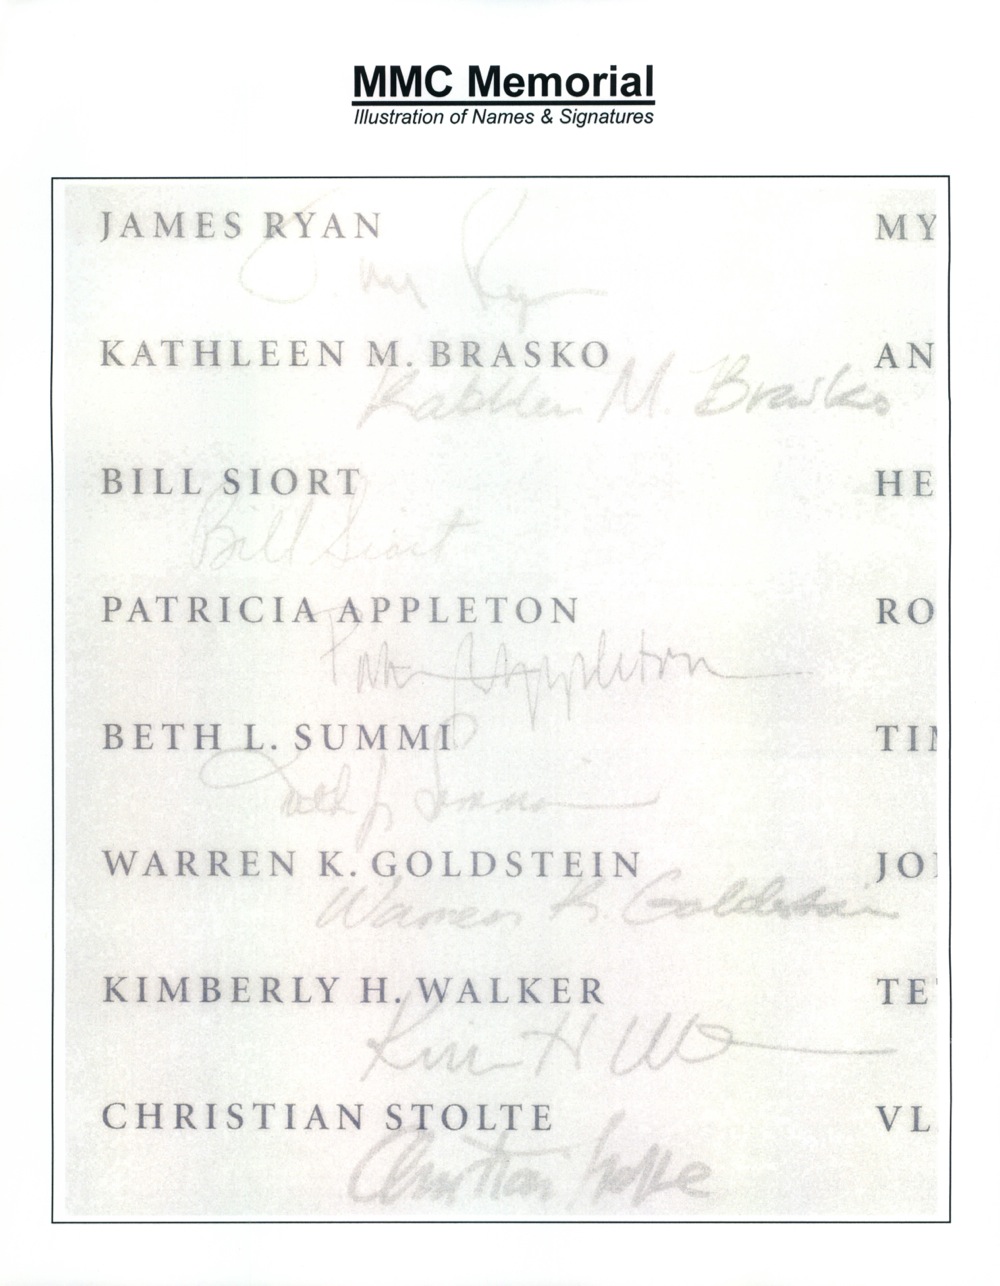 MMC Memorial
Illustration of Names & Signatures
JAMES RYAN MY
KATHLEEN M. BRASKO AN
Kathleen M. Brasko
BILL SIORT HE
Bill Siort
PATRICIA APPLETON RO
Appleton
BETH L. SUMMI TI
WARREN K. GOLDSTEIN JO
Warren K. Goldstein
KIMBERLY H. WALKER TE
Kim H
CHRISTIAN STOLTE VL
Christian Stolte